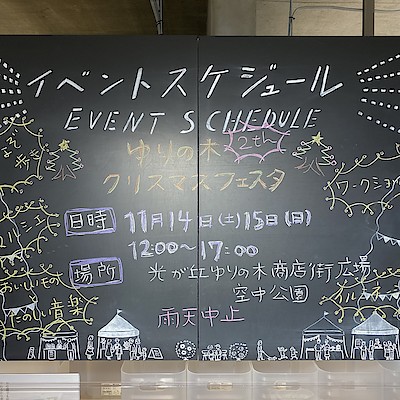 イベントスケジュール
EVENT SCHEDULE
ゆりの木 2th
クリスマスフェスタ
ワークショ
マルシェ
日時 11月14日(土)15日(日)
12:00〜17:00
場所 光が丘ゆりの木商店街広場、
空中公園
おいしいもの
たのしい音楽
雨天中止